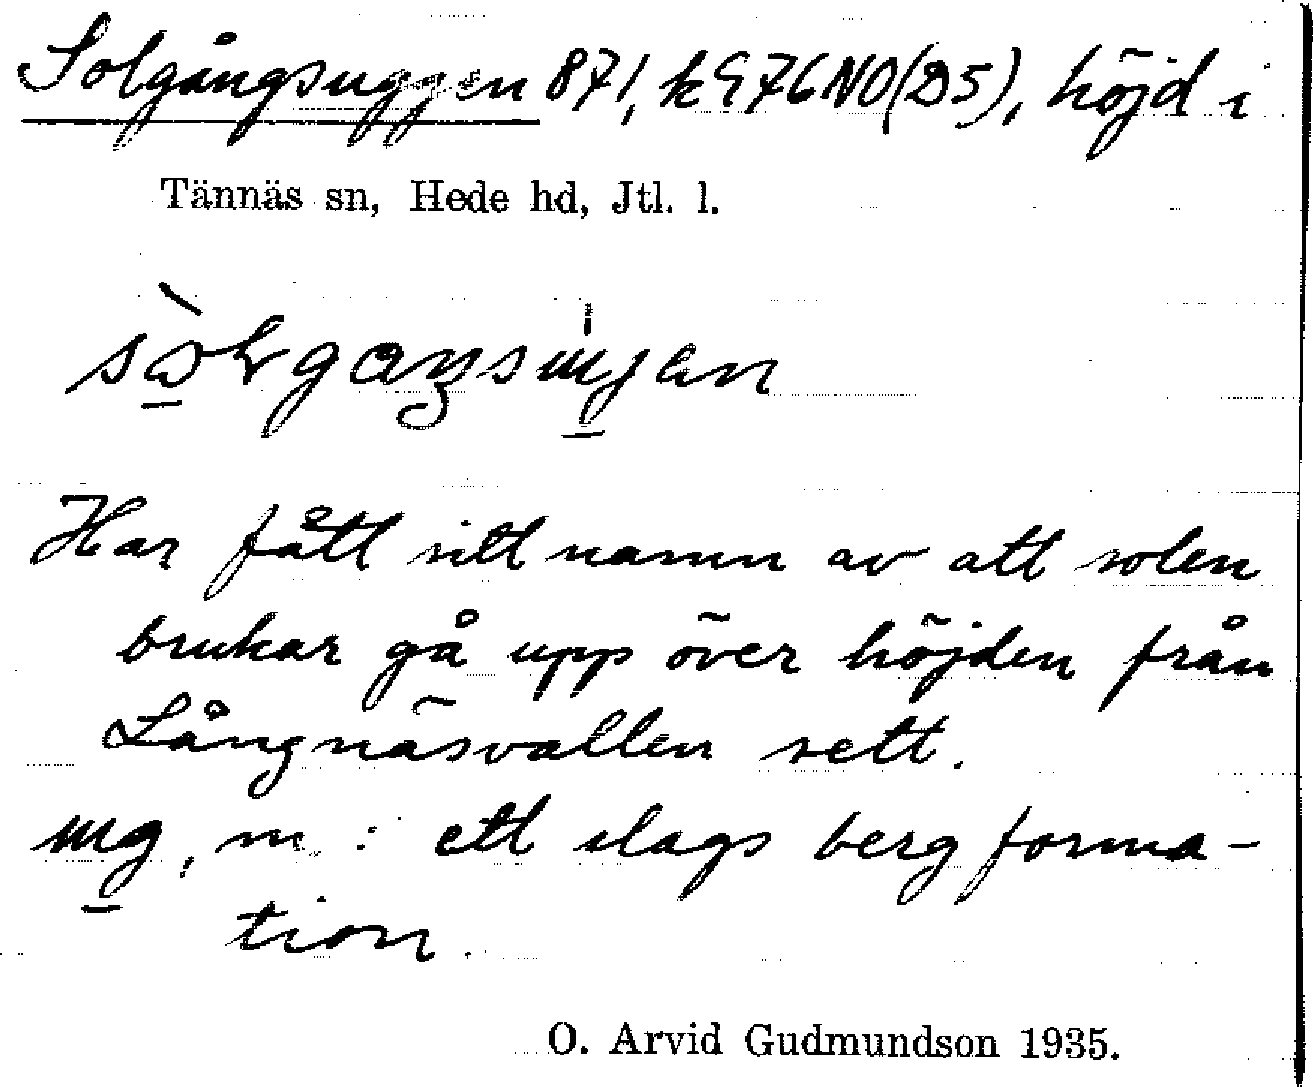 Solgångsuggen 871, k 976 NO (D5), höjd i
Tännäs sn, Hede hd, Jtl. l.
Har fått sitt namn av att solen
brukar gå upp över höjden från
Långnäsvallen sett.
ug, m.: ett slags bergforma-
tion.
O. Arvid Gudmundson 1935.